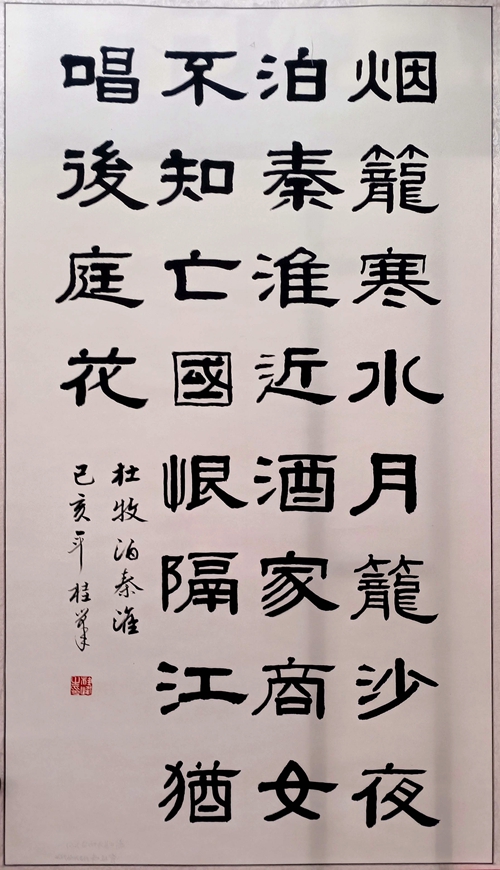 烟籠寒水月籠沙夜
泊秦淮近酒家商女
不知亡國恨隔江猶
唱後庭花
杜牧泊秦淮
己亥年桂